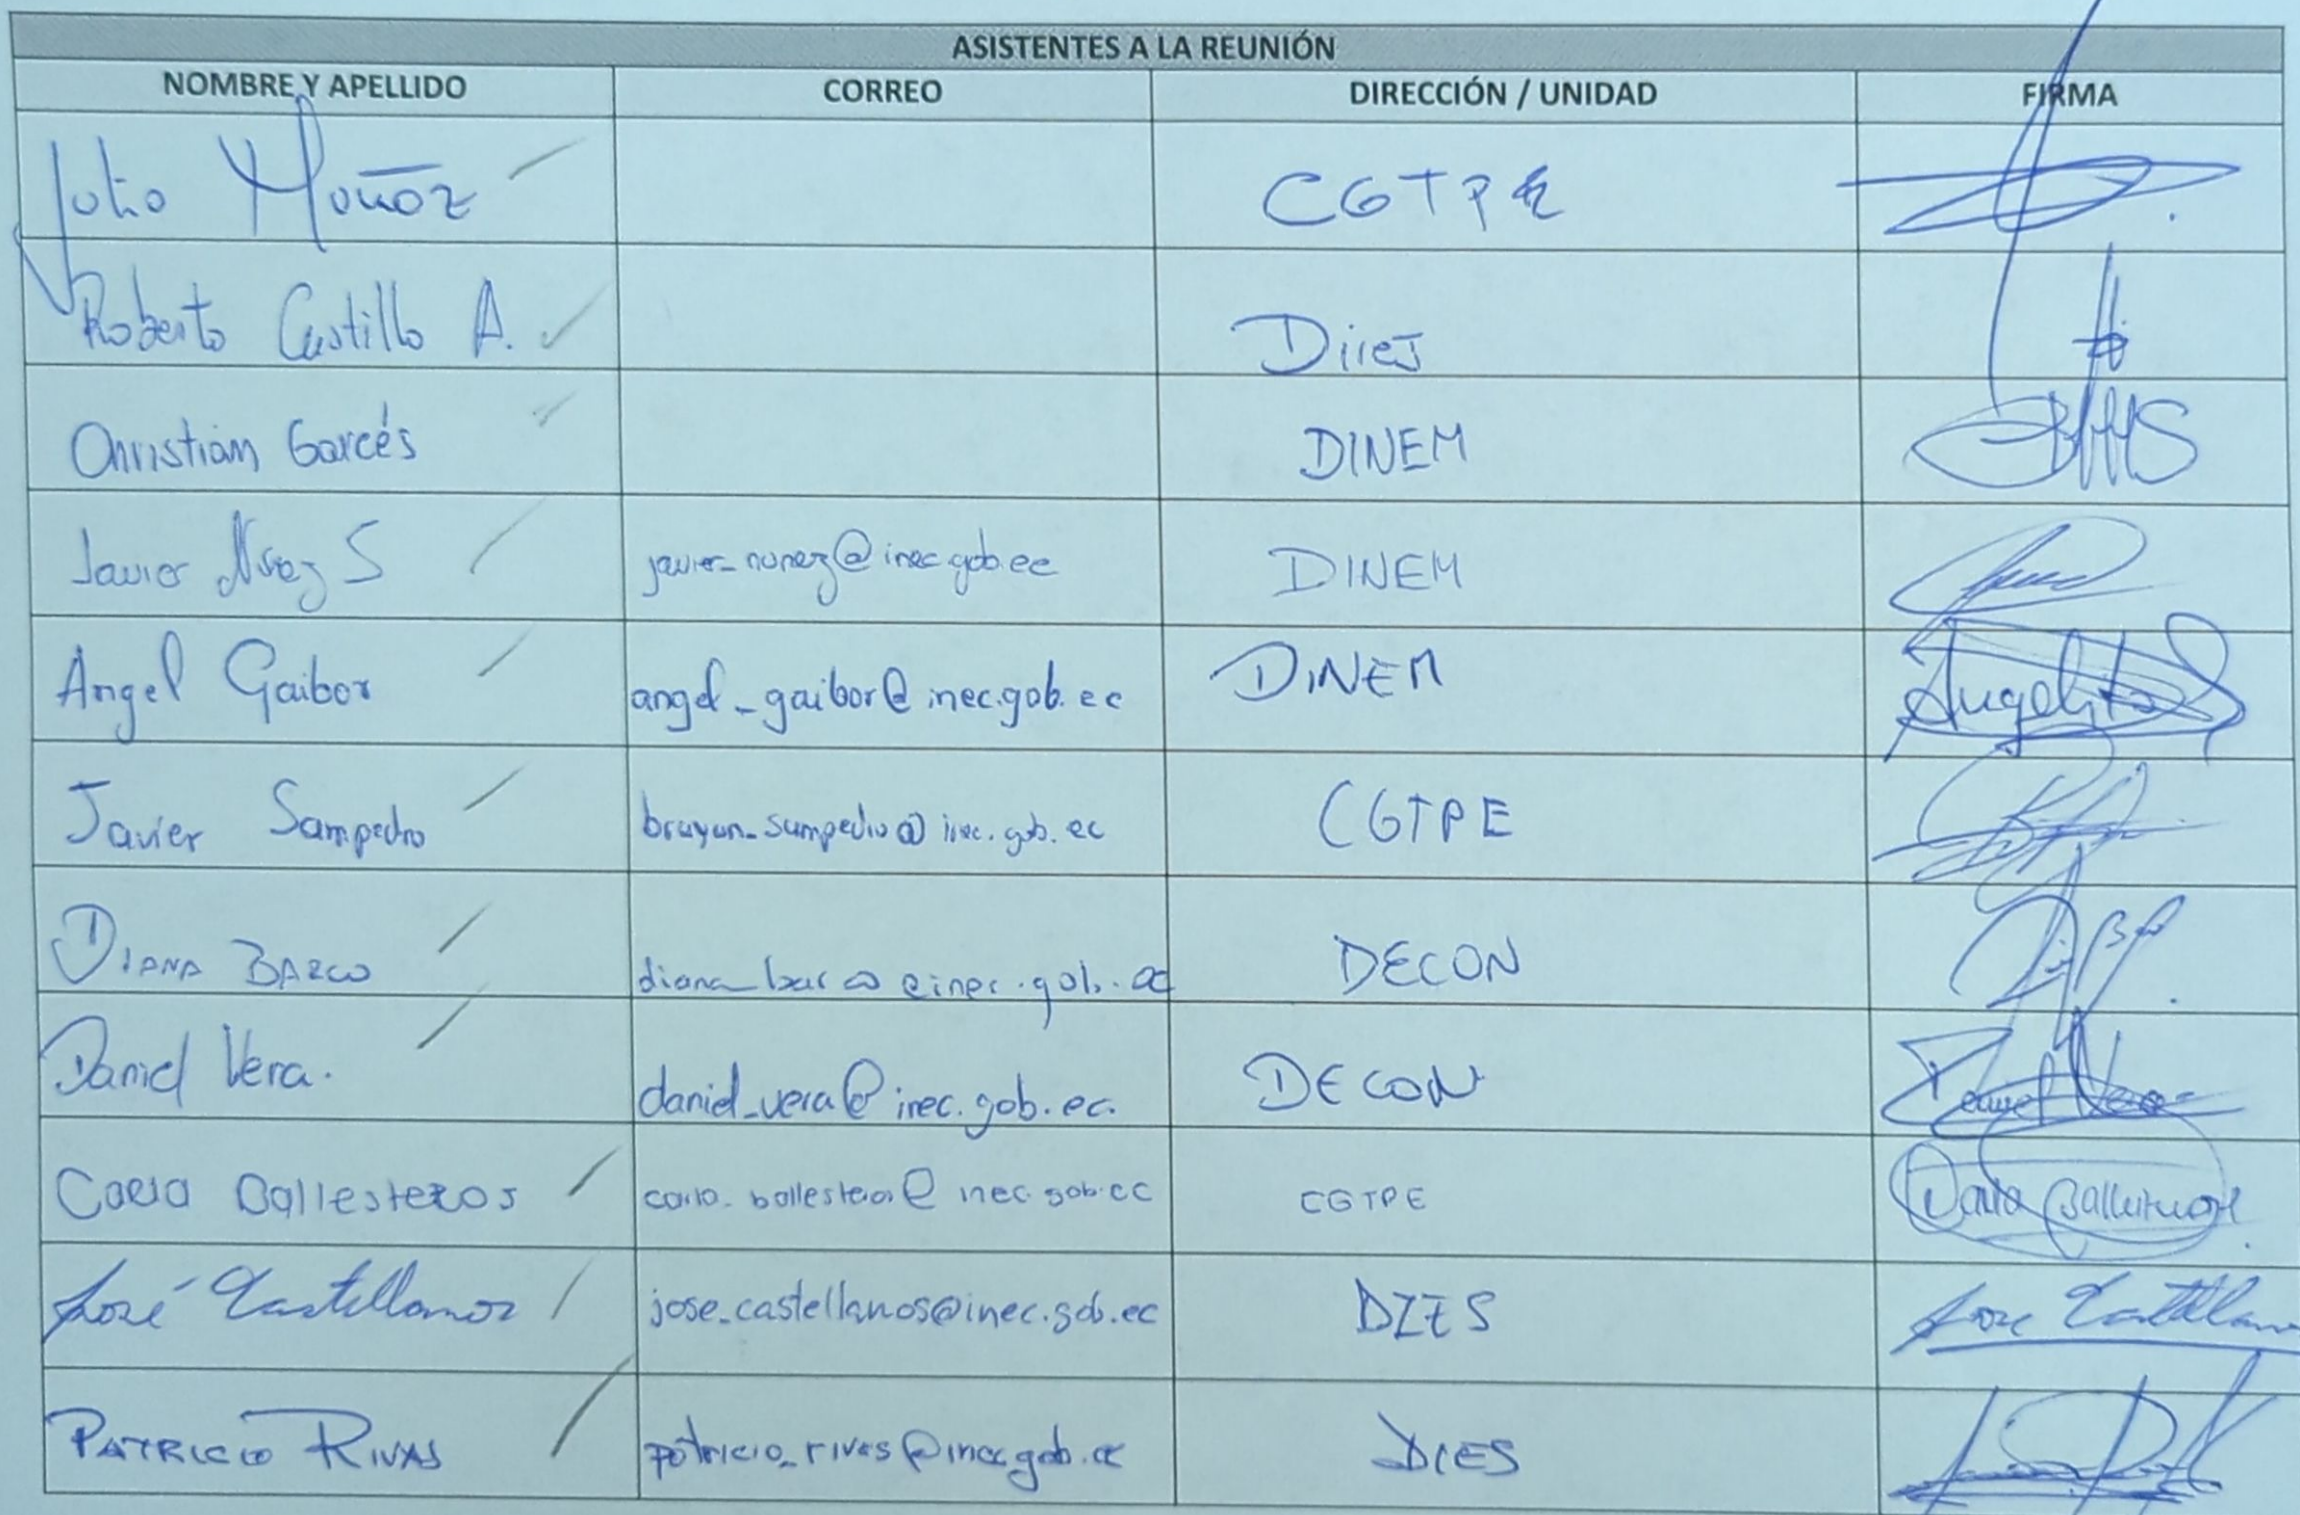 ASISTENTES A LA REUNIÓN
NOMBRE Y APELLIDO CORREO DIRECCIÓN / UNIDAD FIRMA
Julio Muñoz CGTPE
Roberto Castillo A.
Christian Garcés DINEM
Javier Nuñez S javier_nunez@inec.gob.ec DINEM
Angel Gaibor angel_gaibor@inec.gob.ec DINEM Angelito
Javier Sampedro brayan_sampedro@inec.gob.ec CGTPE
DIANA BARCO diana_barco@inec.gob.ec DECON
Daniel Vera. daniel_vera@inec.gob.ec. DECON Daniel Vera
Carla Ballesteros carla_ballesteros@inec.gob.ec CGTPE Carla Ballesteros
José Castellanos jose_castellanos@inec.gob.ec DIES Jose Castellanos
PATRICIO RIVAS patricio_rivas@inec.gob.ec DIES